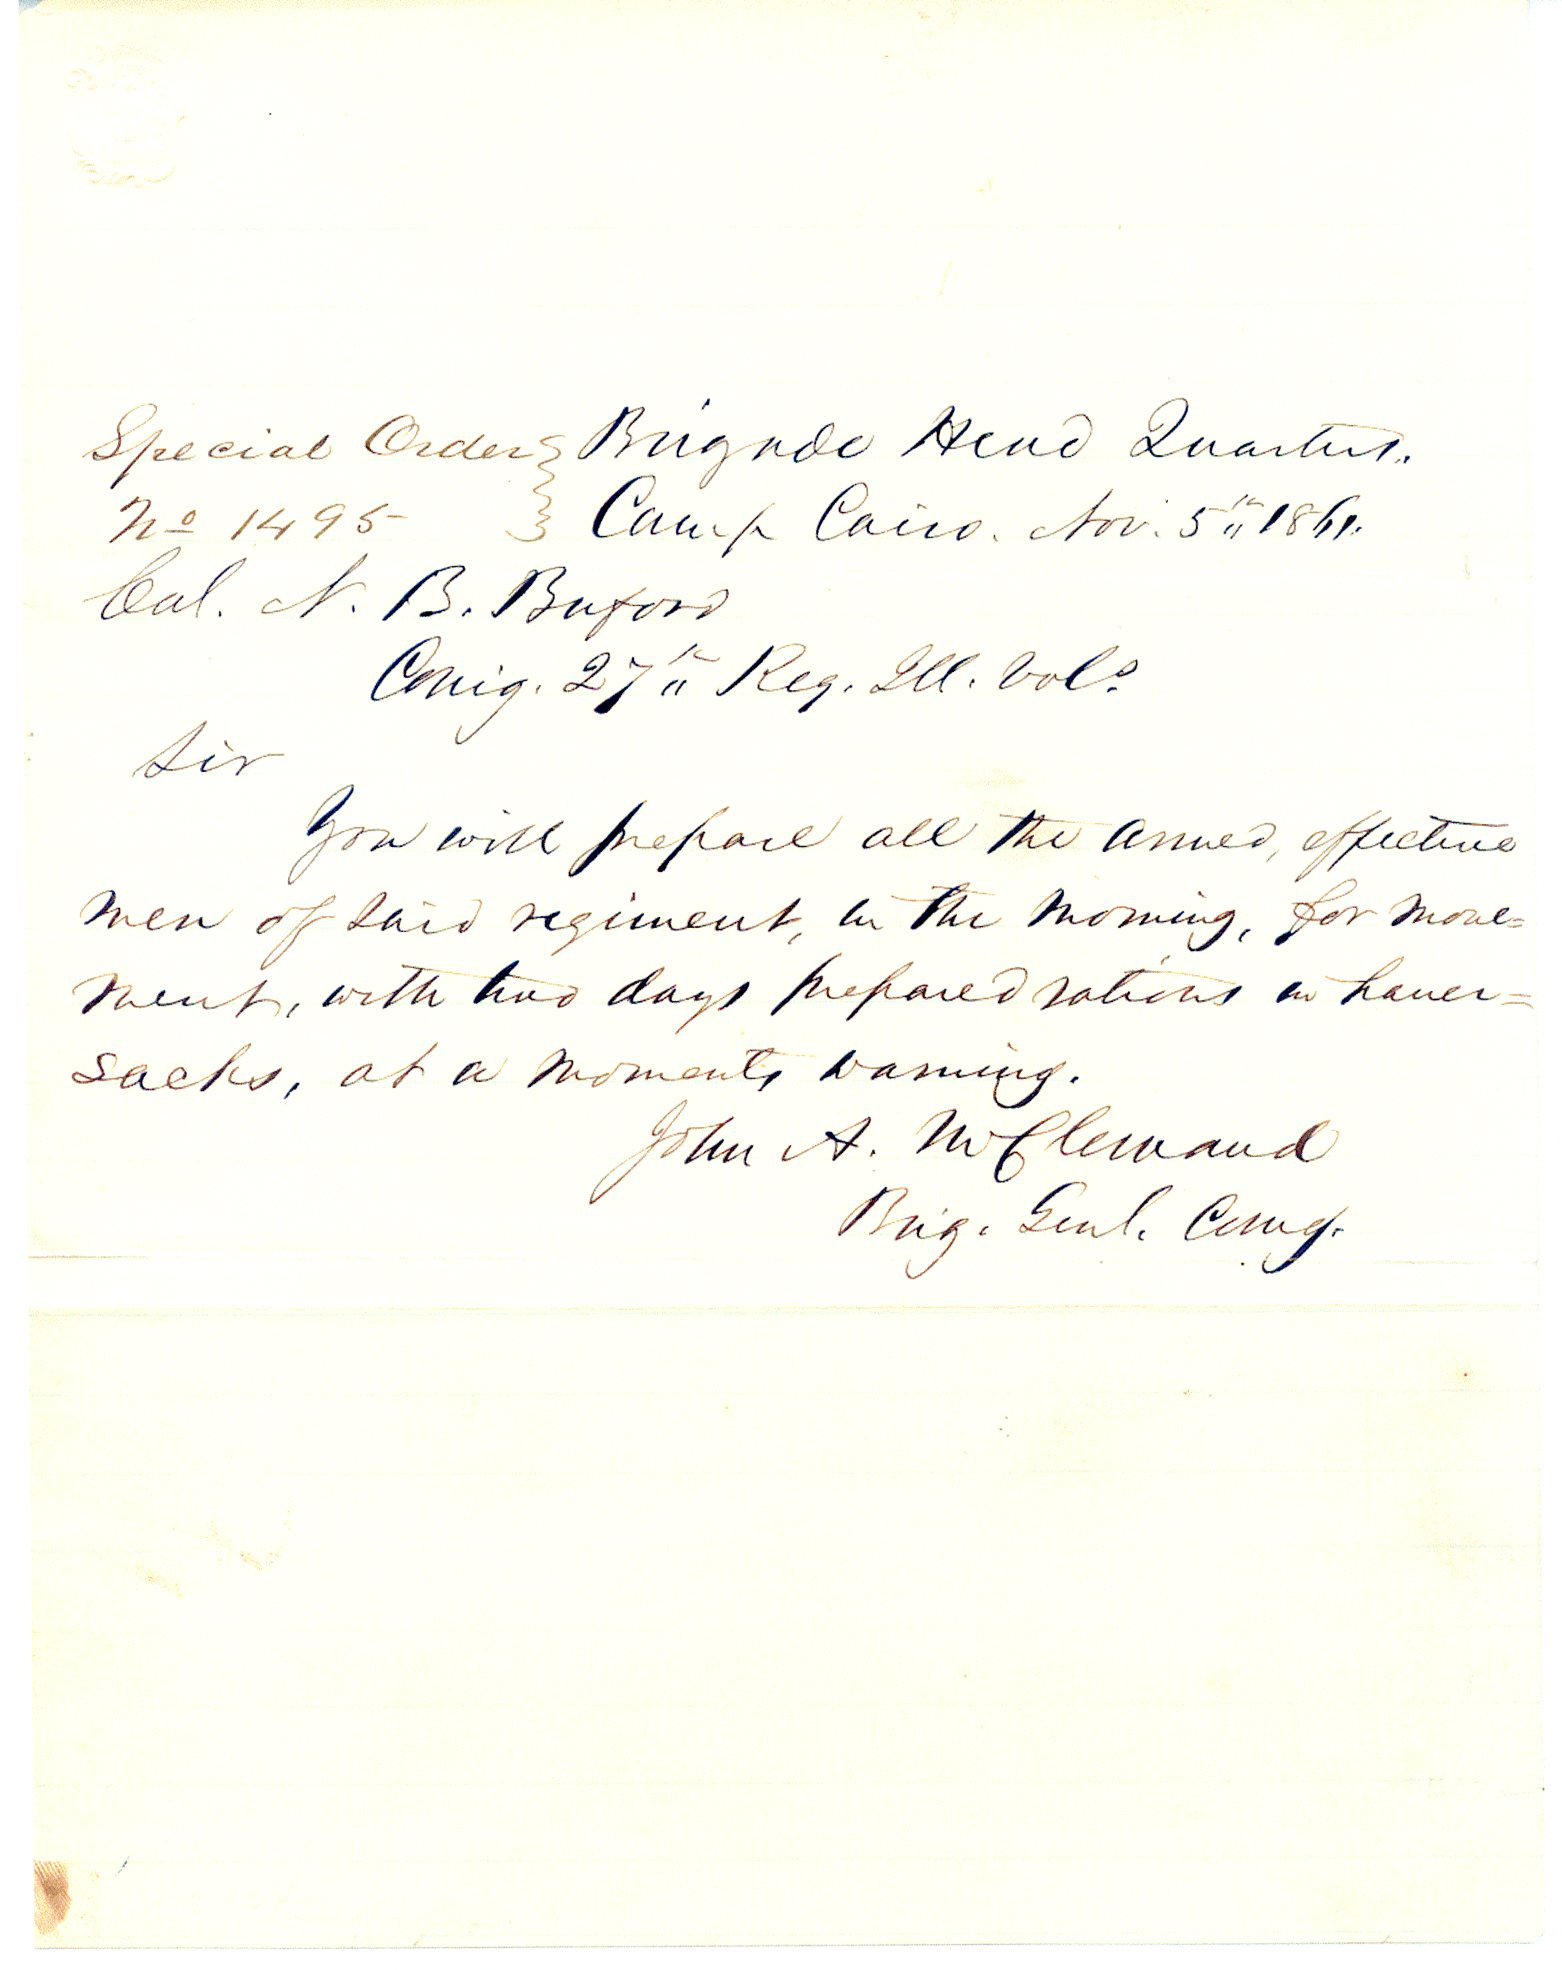 Special Order } Brigade Head Quarters.
No 1495 } Camp Cairo. Nov. 5th 1861.
Col. N. B. Buford
Comg. 27th Reg. Ill. Vols.
Sir
You will prepare all the armed, effective
men of said regiment, in the morning, for move=
ment, with two days prepared rations in haver=
sacks, at a moments warning.
John A. McClernand
Brig. Genl. Comg.